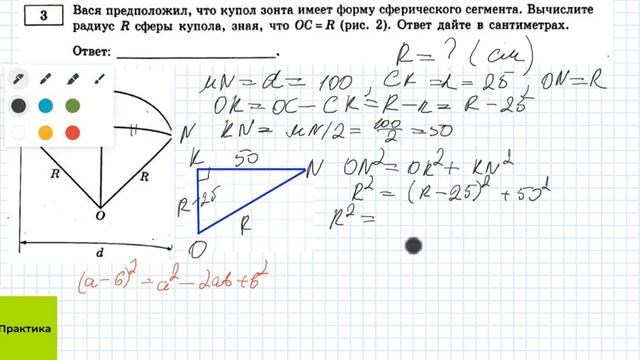 3
Вася предположил, что купол зонта имеет форму сферического сегмента. Вычислите
радиус R сферы купола, зная, что OC = R (рис. 2). Ответ дайте в сантиметрах.
Ответ:
R = ? (см)
MN = d = 100, CK = h = 25, ON = R
OK = OC − CK = R − h = R − 25
KN = MN/2 = 100/2 = 50
N
R
R
O
d
K
50
N
R−25
R
O
ON² = OK² + KN²
R² = (R−25)² + 50²
R² =
(a − b)² = a² − 2ab + b²
Практика